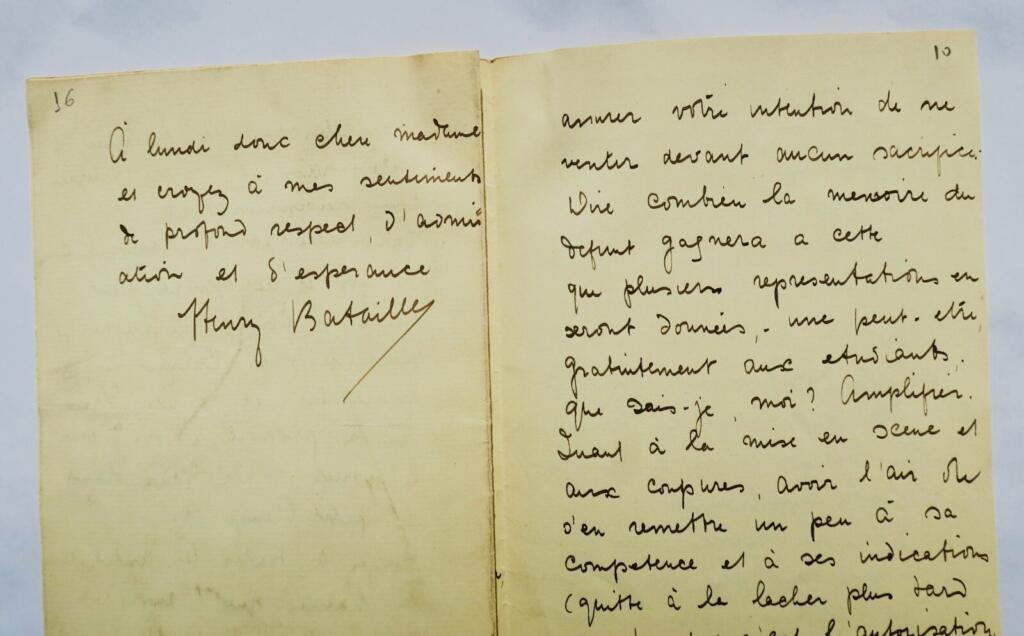 16
À lundi donc chere madame
et croyez à mes sentiments
de profond respect, d'admir
ation et d'esperance
Henry Bataille
10
assurer votre intention de ne
devant aucun sacrifice.
Dire combien la memoire du
defunt gagnera a cette
que plusieurs representations en
seront données, - une peut-etre,
gratuitement aux etudiants.
que sais-je, moi? Amplifier.
Quant à la mise en scene et
aux coupures, avoir l'air de
s'en remettre un peu à sa
competence et à ses indications
(quitte à le lacher plus tard
l'autorisation